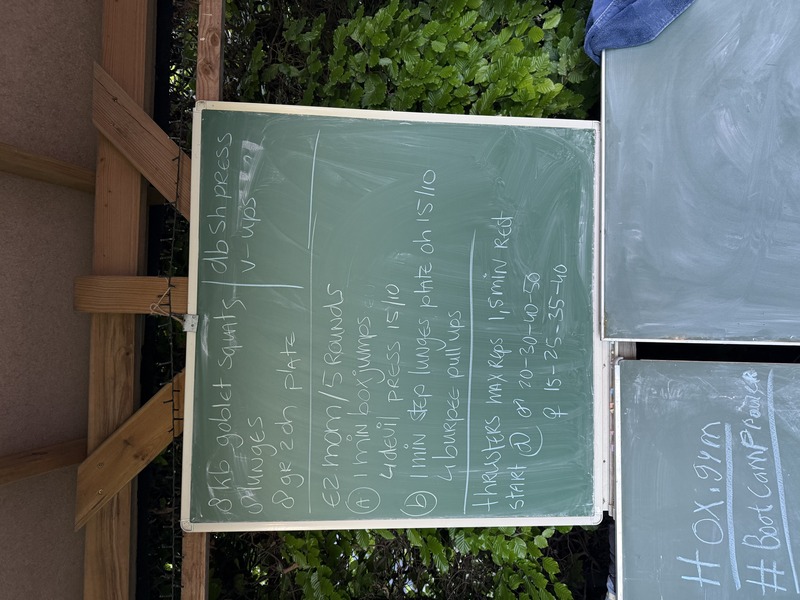 8 kb goblet squats / db sh press
8 lunges v-ups
8 gr 2 oh plate
E2 mom / 5 ROUNDS
(A) 1 min box jumps
4 devil PRESS 15/10
(b) 1 min step lunges plate oh 15/10
4 burpee pull ups
thRUSTERS MAX REPS 1,5 min REST
START @ ♂ 20-30-40-50
♀ 15-25-35-40
# OXigym
# BootCAMP